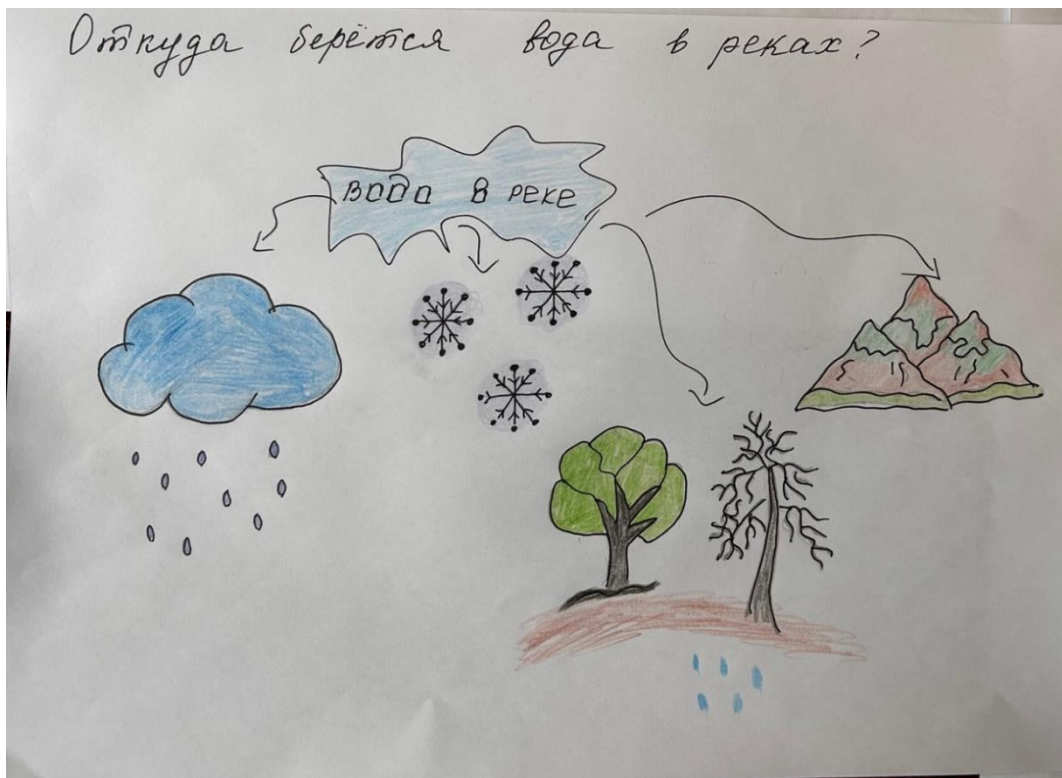 Откуда берётся вода в реках?
ВОДА В РЕКЕ